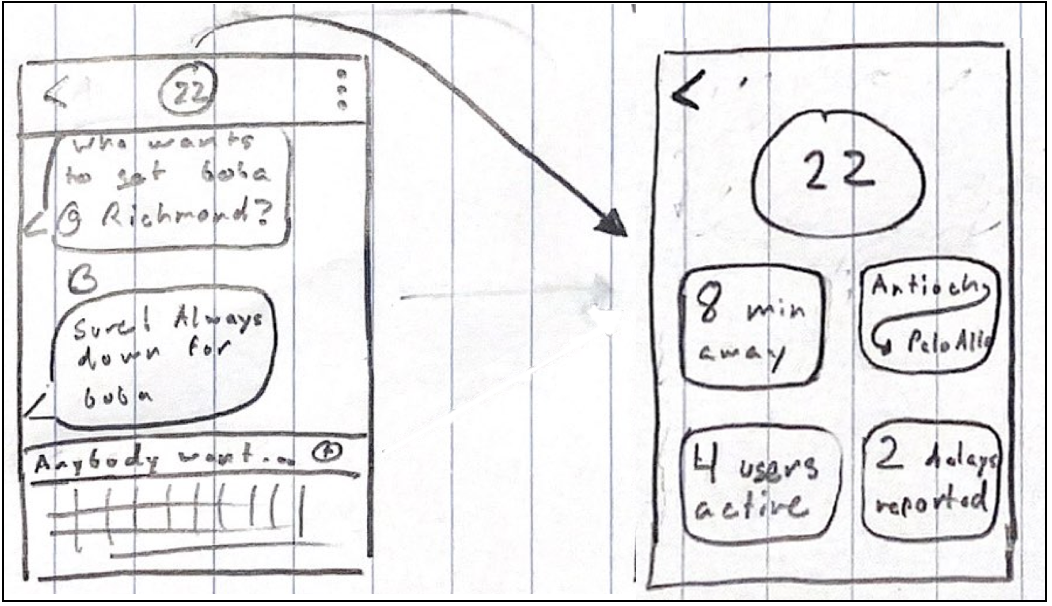 <
22
Who wants
to get boba
@ Richmond?
B
Sure! Always
down for
boba
Anybody want...
<
22
8 min
away
Antioch
Palo Alto
4 users
active
2 delays
reported